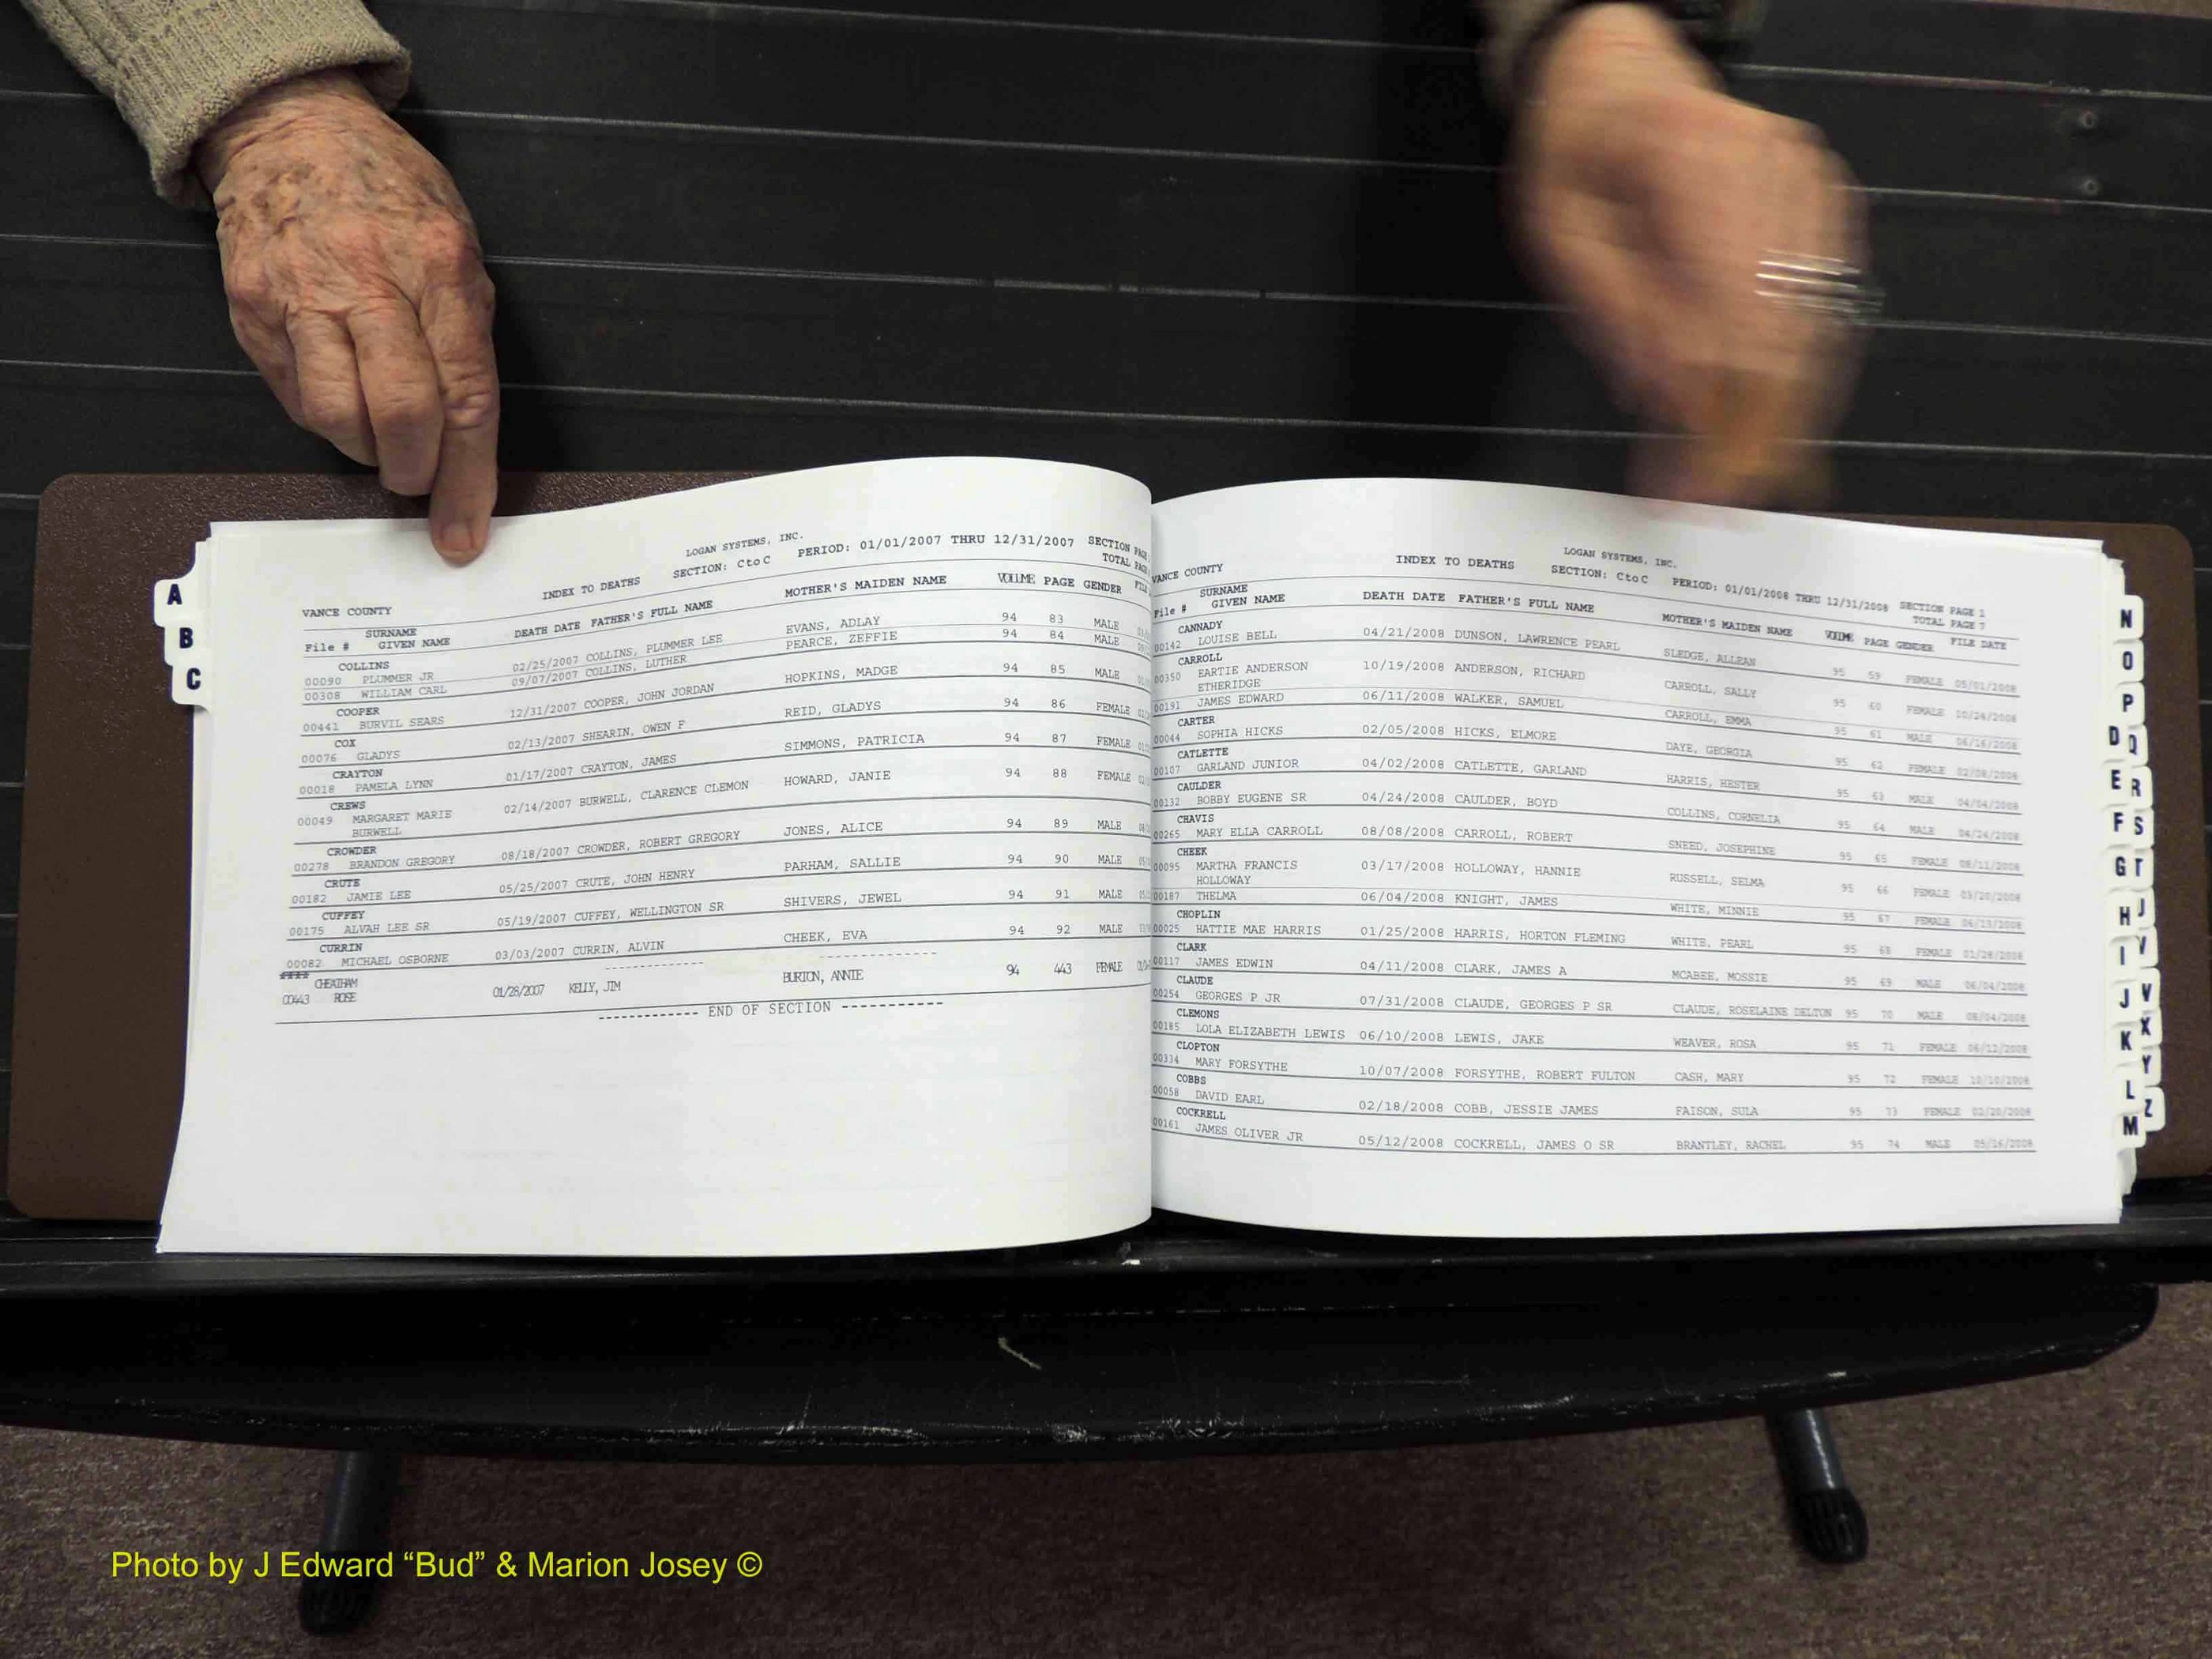 LOGAN SYSTEMS, INC.
VANCE COUNTY INDEX TO DEATHS SECTION: C to C PERIOD: 01/01/2007 THRU 12/31/2007 SECTION PAGE
TOTAL PAGE
SURNAME
File # GIVEN NAME DEATH DATE FATHER'S FULL NAME MOTHER'S MAIDEN NAME VOLUME PAGE GENDER FILE
COLLINS
00090 PLUMMER JR 02/25/2007 COLLINS, PLUMMER LEE EVANS, ADLAY 94 83 MALE
00308 WILLIAM CARL 09/07/2007 COLLINS, LUTHER PEARCE, ZEFFIE 94 84 MALE
COOPER
00441 BURVIL SEARS 12/31/2007 COOPER, JOHN JORDAN HOPKINS, MADGE 94 85 MALE
COX
00076 GLADYS 02/13/2007 SHEARIN, OWEN F REID, GLADYS 94 86 FEMALE
CRAYTON
00018 PAMELA LYNN 01/17/2007 CRAYTON, JAMES SIMMONS, PATRICIA 94 87 FEMALE
CREWS
00049 MARGARET MARIE 02/14/2007 BURWELL, CLARENCE CLEMON HOWARD, JANIE 94 88 FEMALE
BURWELL
CROWDER
00278 BRANDON GREGORY 08/18/2007 CROWDER, ROBERT GREGORY JONES, ALICE 94 89 MALE
CRUTE
00182 JAMIE LEE 05/25/2007 CRUTE, JOHN HENRY PARHAM, SALLIE 94 90 MALE
CUFFEY
00175 ALVAH LEE SR 05/19/2007 CUFFEY, WELLINGTON SR SHIVERS, JEWEL 94 91 MALE
CURRIN
00082 MICHAEL OSBORNE 03/03/2007 CURRIN, ALVIN CHEEK, EVA 94 92 MALE
CHEATHAM
00443 ROSE 01/28/2007 KELLY, JIM BURTON, ANNIE 94 443 FEMALE
------------ END OF SECTION ------------
LOGAN SYSTEMS, INC.
VANCE COUNTY INDEX TO DEATHS SECTION: C to C PERIOD: 01/01/2008 THRU 12/31/2008 SECTION PAGE 1
TOTAL PAGE 7
SURNAME
File # GIVEN NAME DEATH DATE FATHER'S FULL NAME MOTHER'S MAIDEN NAME VOLUME PAGE GENDER FILE DATE
CANNADY
00142 LOUISE BELL 04/21/2008 DUNSON, LAWRENCE PEARL SLEDGE, ALLEAN 95 59 FEMALE 05/01/2008
CARROLL
00350 EARTIE ANDERSON 10/19/2008 ANDERSON, RICHARD CARROLL, SALLY 95 60 FEMALE 10/24/2008
ETHERIDGE
00191 JAMES EDWARD 06/11/2008 WALKER, SAMUEL CARROLL, EMMA 95 61 MALE 06/16/2008
CARTER
00044 SOPHIA HICKS 02/05/2008 HICKS, ELMORE DAYE, GEORGIA 95 62 FEMALE 02/08/2008
CATLETTE
00107 GARLAND JUNIOR 04/02/2008 CATLETTE, GARLAND HARRIS, HESTER 95 63 MALE 04/04/2008
CAULDER
00132 BOBBY EUGENE SR 04/24/2008 CAULDER, BOYD COLLINS, CORNELIA 95 64 MALE 04/24/2008
CHAVIS
00265 MARY ELLA CARROLL 08/08/2008 CARROLL, ROBERT SNEED, JOSEPHINE 95 65 FEMALE 08/11/2008
CHEEK
00095 MARTHA FRANCIS 03/17/2008 HOLLOWAY, HANNIE RUSSELL, SELMA 95 66 FEMALE 03/20/2008
HOLLOWAY
00187 THELMA 06/04/2008 KNIGHT, JAMES WHITE, MINNIE 95 67 FEMALE 06/13/2008
CHOPLIN
00025 HATTIE MAE HARRIS 01/25/2008 HARRIS, HORTON FLEMING WHITE, PEARL 95 68 FEMALE 01/28/2008
CLARK
00117 JAMES EDWIN 04/11/2008 CLARK, JAMES A MCABEE, MOSSIE 95 69 MALE 06/04/2008
CLAUDE
00254 GEORGES P JR 07/31/2008 CLAUDE, GEORGES P SR CLAUDE, ROSELAINE DELTON 95 70 MALE 08/04/2008
CLEMONS
00185 LOLA ELIZABETH LEWIS 06/10/2008 LEWIS, JAKE WEAVER, ROSA 95 71 FEMALE 06/12/2008
CLOPTON
00334 MARY FORSYTHE 10/07/2008 FORSYTHE, ROBERT FULTON CASH, MARY 95 72 FEMALE 10/10/2008
COBBS
00058 DAVID EARL 02/18/2008 COBB, JESSIE JAMES FAISON, SULA 95 73 FEMALE 02/20/2008
COCKRELL
00161 JAMES OLIVER JR 05/12/2008 COCKRELL, JAMES O SR BRANTLEY, RACHEL 95 74 MALE 05/16/2008
A
B
C
N
O
P
D Q
E R
F S
G T
H U
I V
J V
K X
Y
L Z
M
Photo by J Edward “Bud” & Marion Josey ©